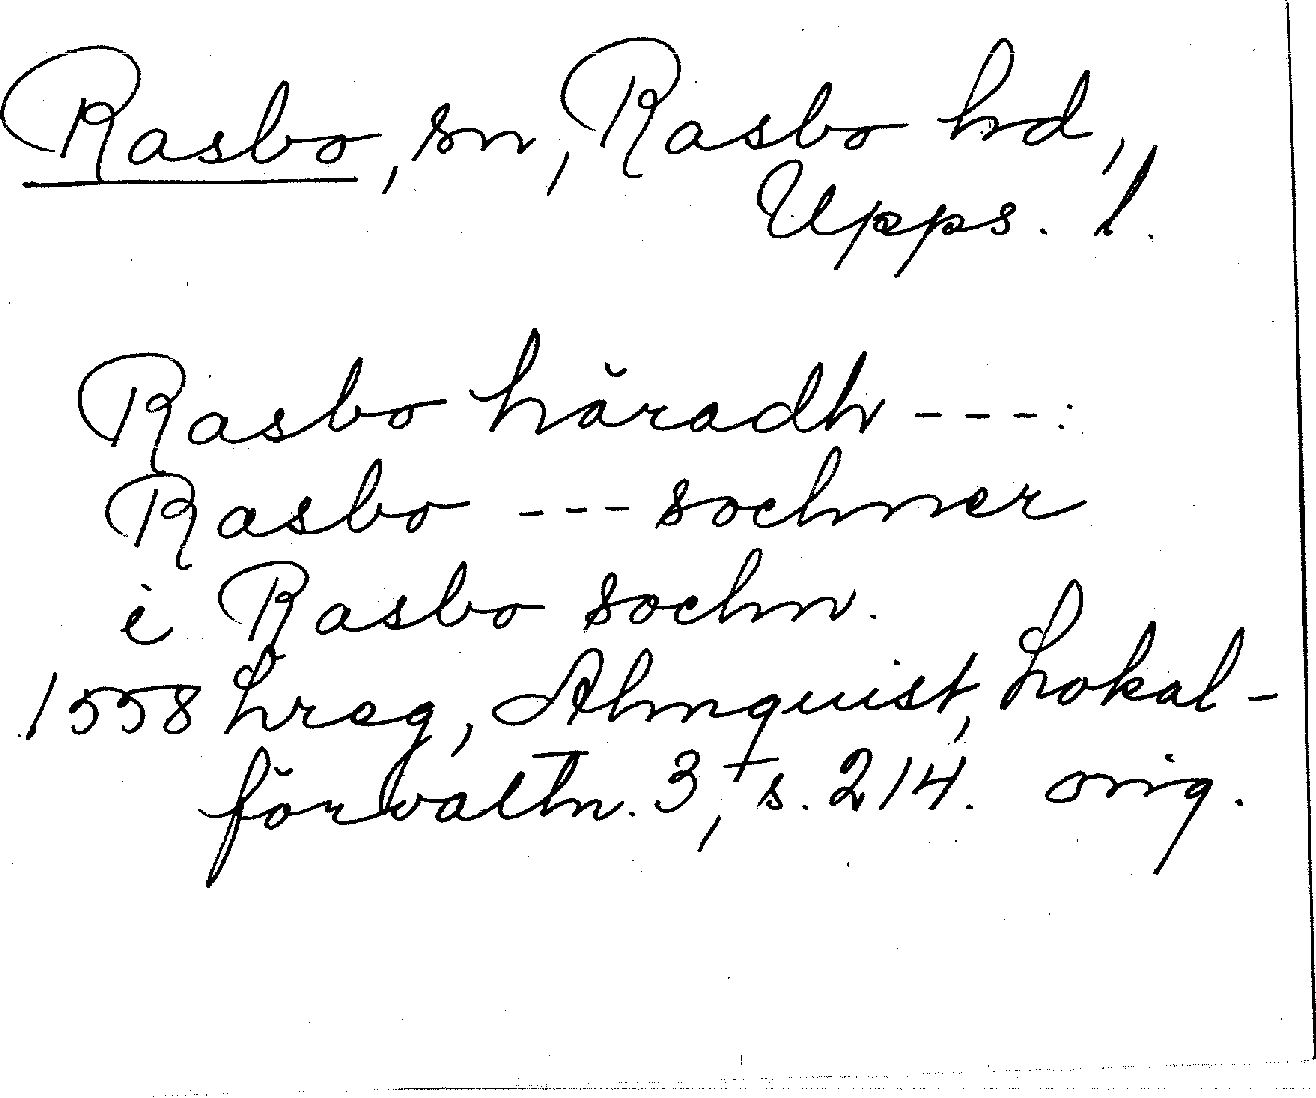 Rasbo, sn, Rasbo hd,
Upps. l.
Rasbo häradh ---:
Rasbo --- sochner
i Rasbo sochn.
1558 Lreg, Almquist, Lokal-
förvaltn. 3, s. 214. orig.